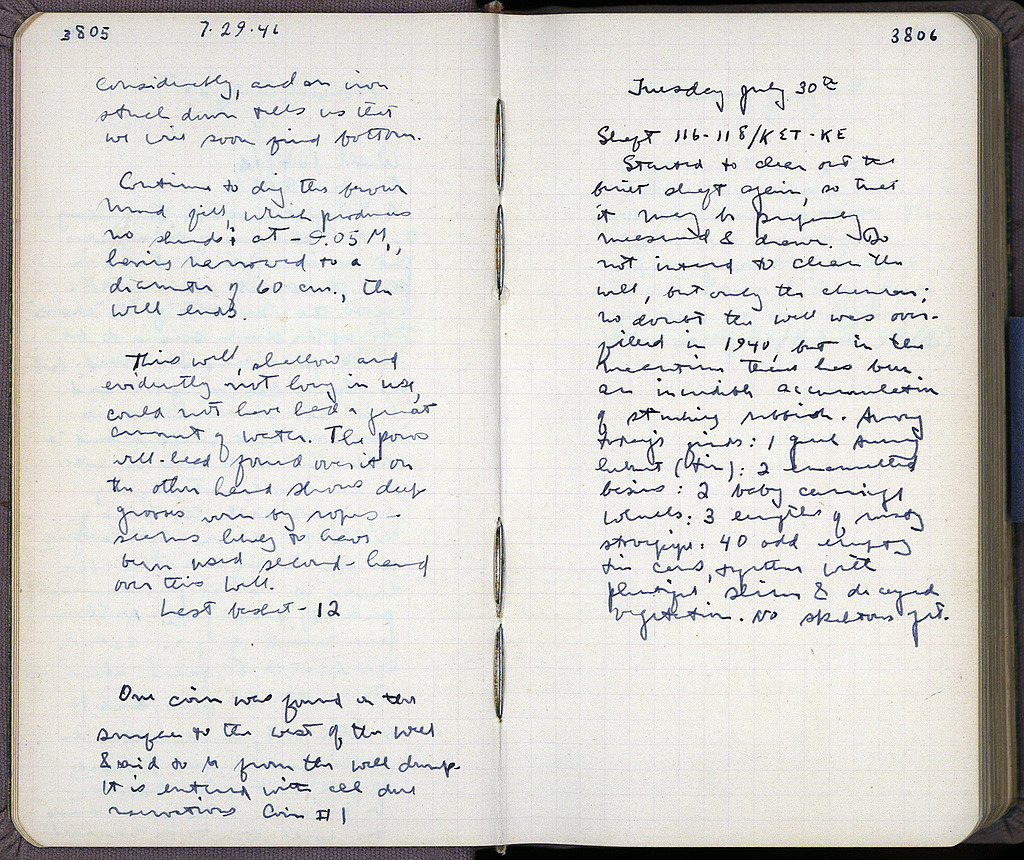 3805 7.29.46
considerably, and an iron
struck down tells us that
we will soon find bottom.
Continue to dig the brown
mud fill, which produces
no sherds; at -9.05 M,
having narrowed to a
diameter of 60 cm., the
well ends.
This well, shallow and
evidently not long in use,
could not have had a great
amount of water. The poros
well-head found over it on
the other hand shows deep
grooves worn by ropes -
seems likely to have
been used second-hand
over this well.
Last basket - 12
One coin was found in the
surface to the west of the well
& said to be from the well dump.
It is entered with all due
reservations Coin #1
3806
Tuesday July 30th
Shaft 116-118/KET-KE
Started to clear out the
built shaft again, so that
it may be properly
measured & drawn. Do
not intend to clear the
well, but only the chamber;
no doubt the well was over-
filled in 1940, but in the
meantime there has been
an incredible accumulation
of stinking rubbish. Among
today's finds: 1 Greek Army
helmet (tin): 2 enamelled
basins: 2 baby carriage
wheels: 3 lengths of rusty
stovepipe: 40 odd empty
tin cans, together with
plentiful slime & decayed
vegetation. No skeletons yet.